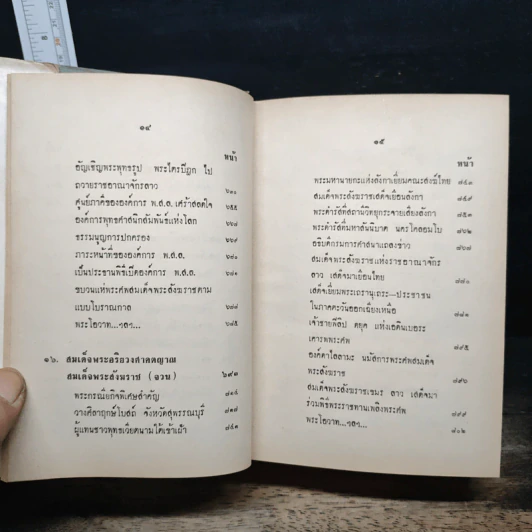 ๑๔
หน้า
อัญเชิญพระพุทธรูป พระไตรปิฎก ไป
ถวายราชอาณาจักรลาว ๖๓๐
ศูนย์ภาคีขององค์การ พ.ส.ล. เศร้าสลดใจ
องค์การพุทธศาสนิกสัมพันธ์แห่งโลก
ธรรมนูญการปกครอง
ภาระหน้าที่ขององค์การ พ.ส.ล.
เป็นประธานพิธีเปิดองค์การ พ.ส.ล.
ขบวนแห่พระศพสมเด็จพระสังฆราชตาม
แบบโบราณกาล
พระโอวาท...ฯลฯ... ๖๘๕
๑๖. สมเด็จพระอริยวงศาคตญาณ
สมเด็จพระสังฆราช (จวน) ๖๙๑
พระกรณียกิจพิเศษสำคัญ
วางศิลาฤกษ์โบสถ์ จังหวัดสุพรรณบุรี
ผู้แทนชาวพุทธเวียดนามใต้เข้าเฝ้า
๑๕
หน้า
พระมหานายกะแห่งลังกาเยี่ยมคณะสงฆ์ไทย ๘๔๓
สมเด็จพระสังฆราชเสด็จเยือนลังกา ๘๔๙
พระดำรัสที่สถานีวิทยุกระจายเสียงลังกา ๘๕๓
พระดำรัสที่มหาสันนิบาต นครโคลอมโบ ๘๖๒
อธิบดีกรมการศาสนาแถลงข่าว ๘๖๗
สมเด็จพระสังฆราชแห่งราชอาณาจักร
ลาว เสด็จมาเยือนไทย ๘๗๑
เสด็จเยี่ยมพระเถรานุเถระ—ประชาชน
ในภาคตะวันออกเฉียงเหนือ ๘๘๑
เจ้าชายฟิลิป ดยุค แห่งเอดินเบอระ
เคารพพระศพ ๘๙๕
องค์ดาไลลามะ นมัสการพระศพสมเด็จ
พระสังฆราช ๘๙๖
สมเด็จพระสังฆราชเขมร ลาว เสด็จมา
ร่วมพิธีพระราชทานเพลิงพระศพ ๘๙๙
พระโอวาท...ฯลฯ... ๙๐๒